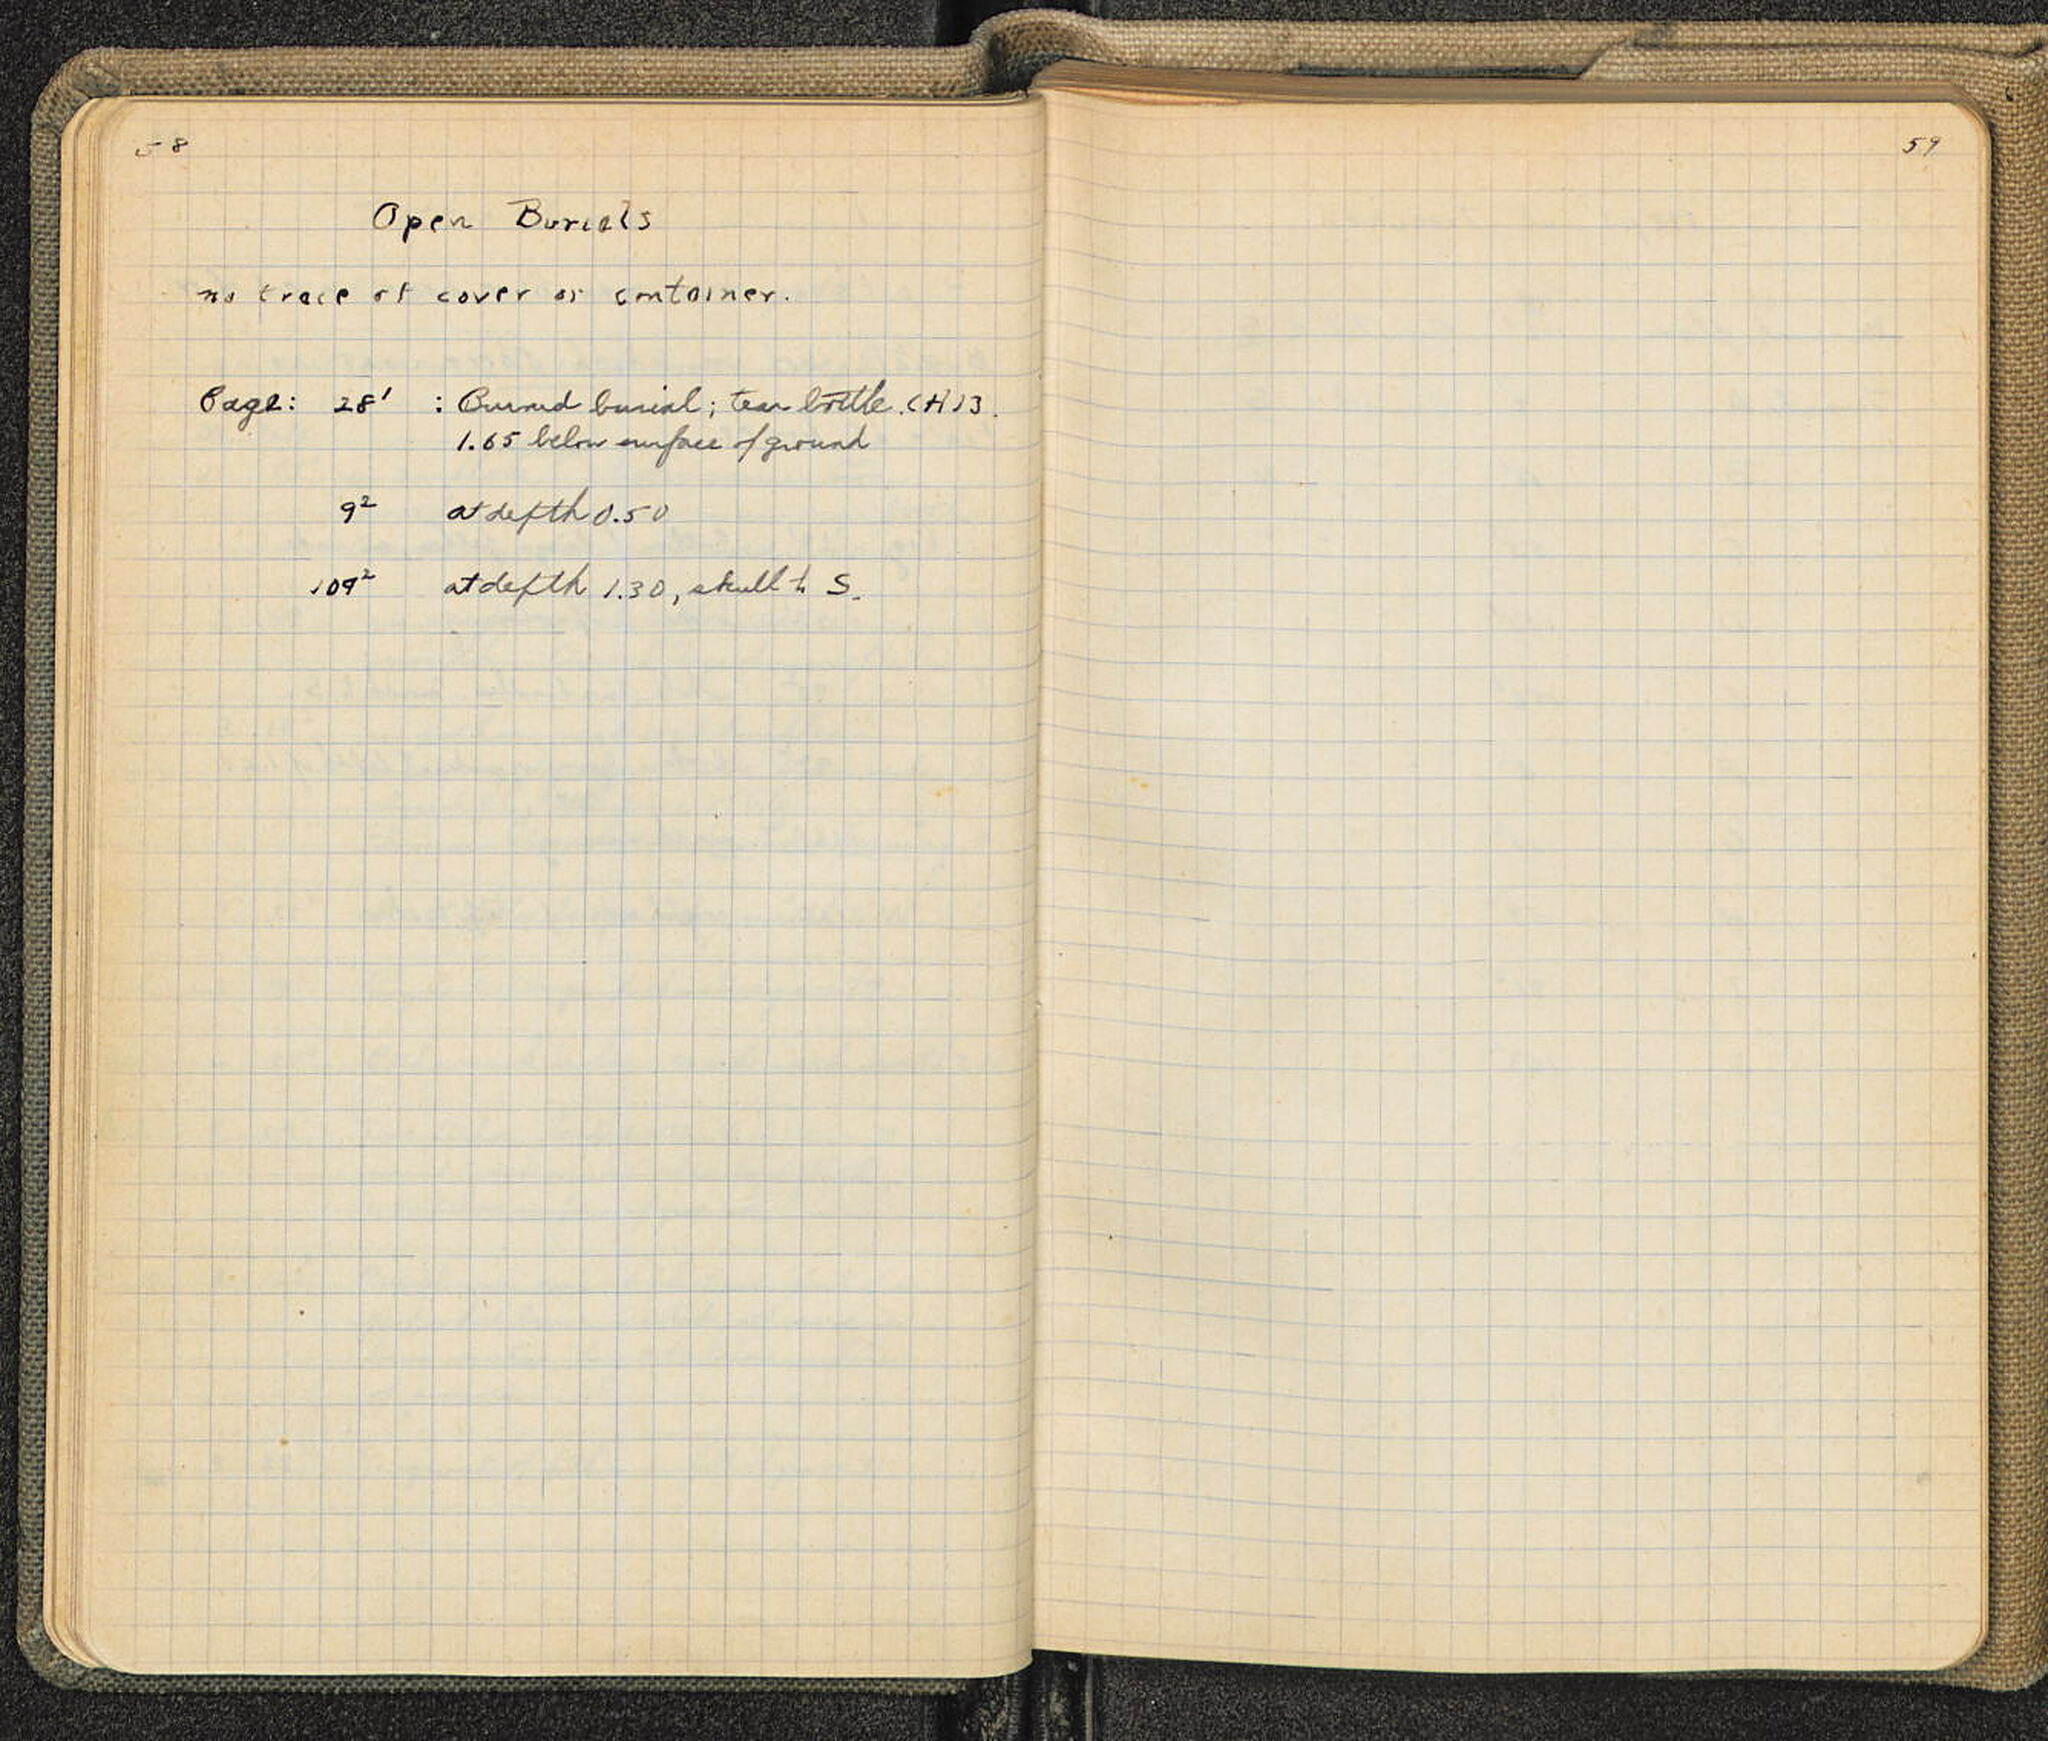 58
Open Burials
no trace of cover or container.
Page: 28¹ : Burned burial; tear bottle. (H)3.
1.65 below surface of ground
9² at depth 0.50
109² at depth 1.30, skull to S.
59